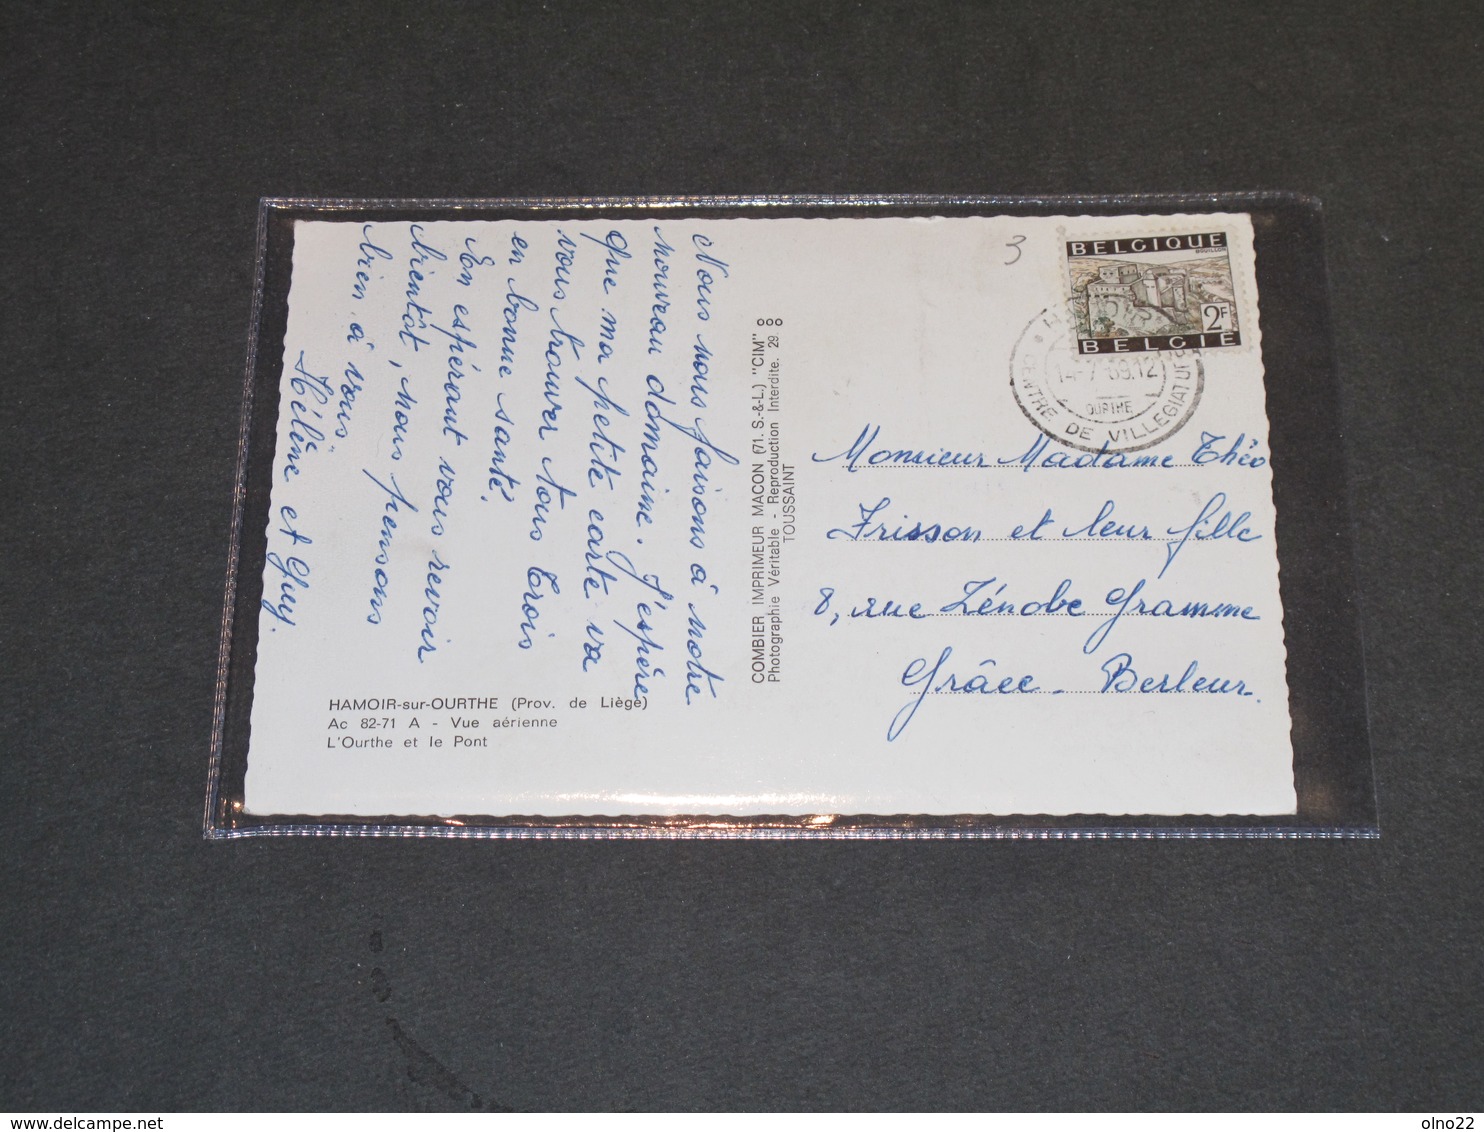 Nous nous faisons à notre
nouveau domaine. J'espère
que ma petite carte va
vous trouver tous trois
en bonne santé.
En espérant vous revoir
bientôt, nous pensons
bien à vous.
Hélène et Guy.
HAMOIR-sur-OURTHE (Prov. de Liège)
Ac 82-71 A - Vue aérienne
L'Ourthe et le Pont
COMBIER IMPRIMEUR MACON (71. S.-&-L.) "CIM"
Photographie Véritable - Reproduction Interdite. 29.
TOUSSAINT
3
BELGIQUE
BOUILLON
2F
BELGIË
CENTRE DE VILLEGIATURE
OURTHE
Monsieur Madame Théo
Frisson et leur fille
8, rue Zénobe Gramme
Grâce-Berleur.
delcampe.net
olno22